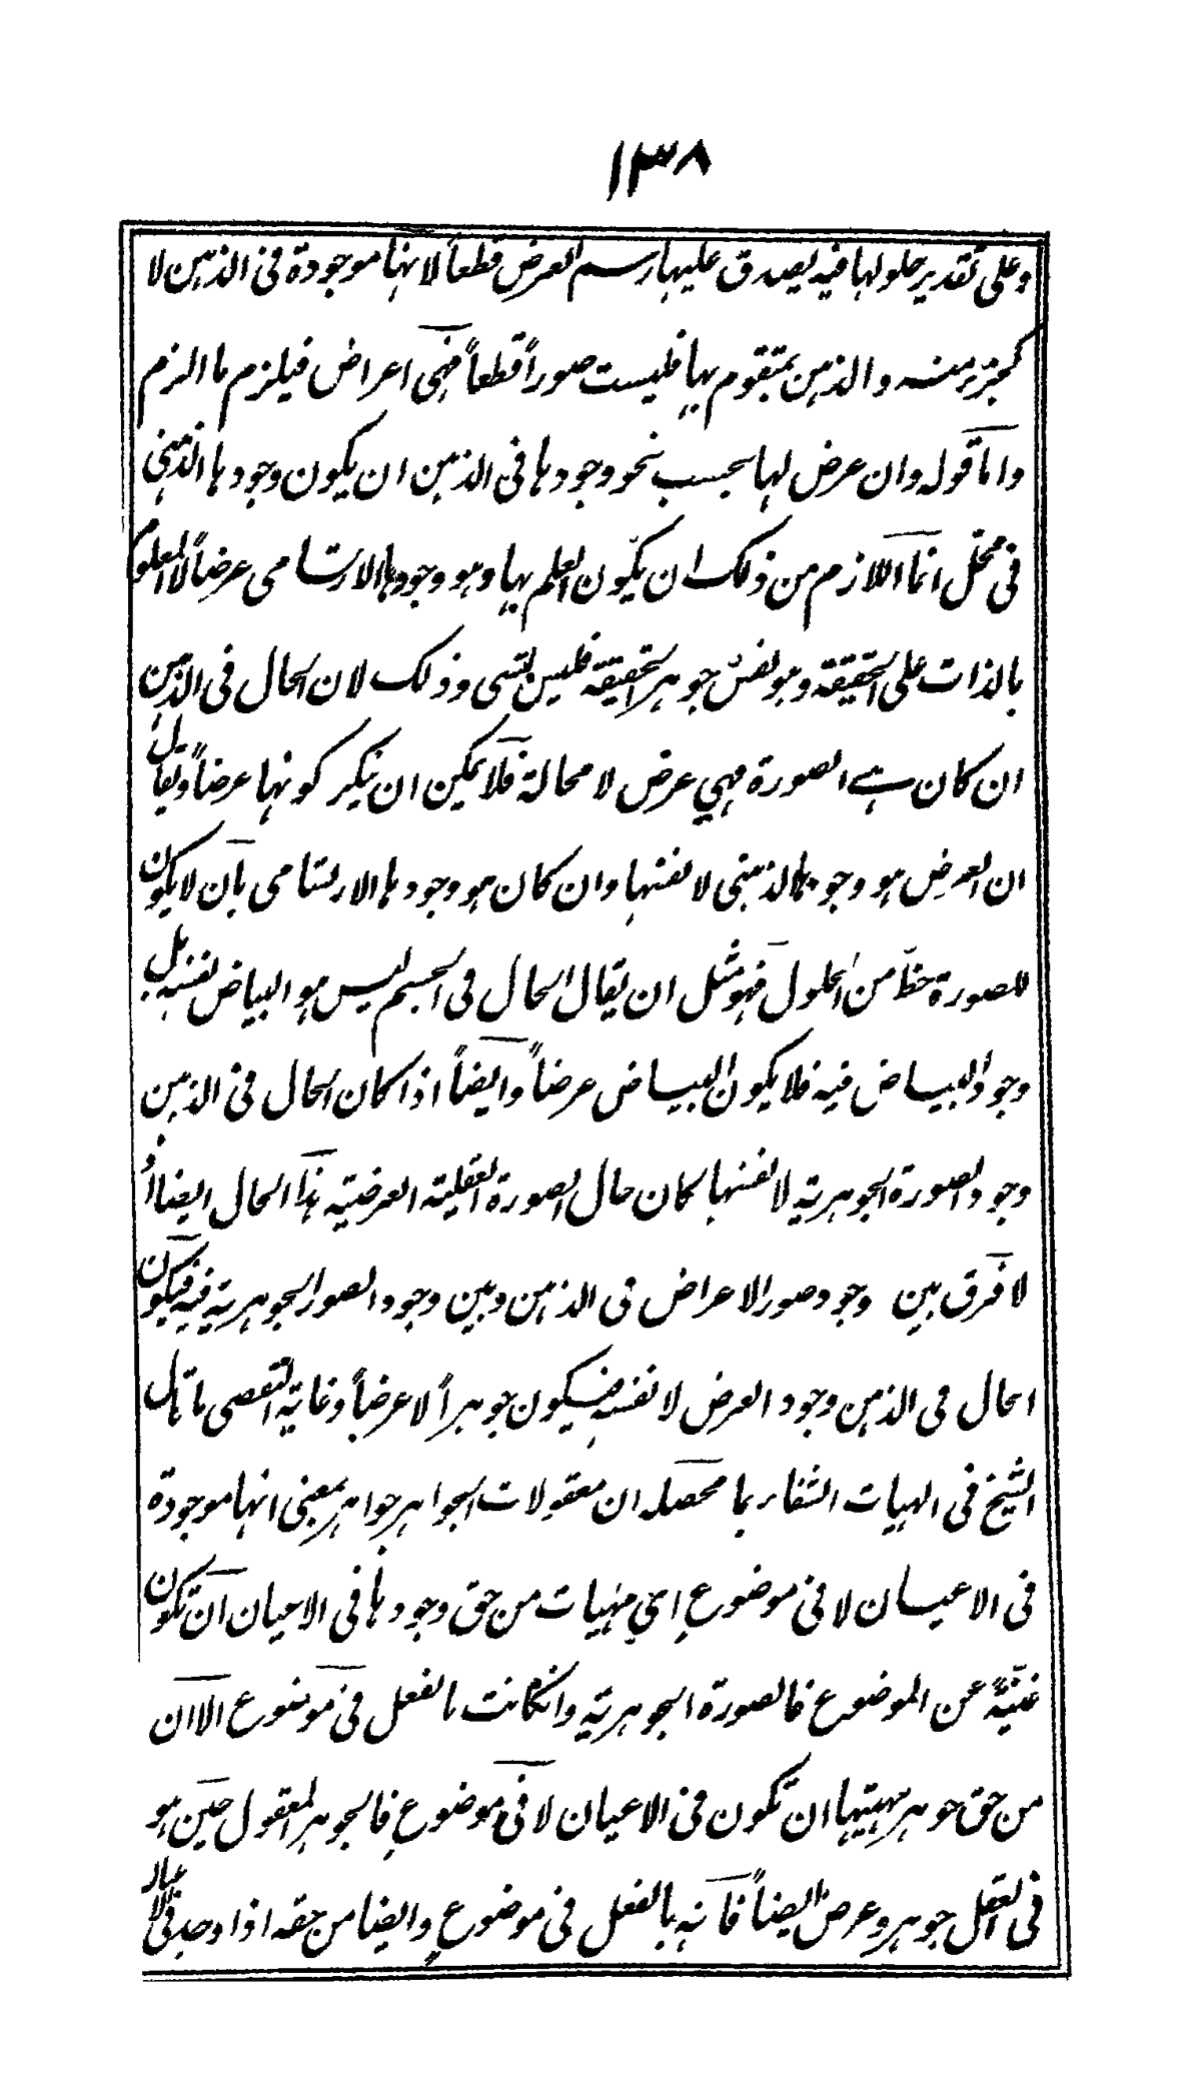 ١٣٨
وعلى تقدير حلولها فيه يصدق عليها رسم العرض قطعاً لانها موجودة فى الذهن لا
كجزء منه والذهن متقوم بها فليست صوراً قطعاً فهى اعراض فيلزم ما الزم
واما قوله وان عرض لها بحسب نحو وجودها فى الذهن ان يكون وجودها الذهنى
فى محل انما اللازم من ذلك ان يكون العلم بها وهو وجودها الارتسامى عرضاً لا المعلوم
بالذات على الحقيقة وهو نفس جوهر الحقيقة فليس بشى وذلك لان الحال فى الذهن
ان كان هے الصورة فهي عرض لا محالة فلا يمكن ان ينكر كونها عرضاً ويقال بل
ان العرض هو وجودها الذهنى لا نفسها وان كان هو وجودها الارتسامى بان لا يكون
للصورة حظ من الحلول فهو مثل ان يقال الحال فى الجسم ليس هو البياض نفسه بل
وجود البياض فيه فلا يكون البياض عرضاً وايضاً اذا كان الحال فى الذهن
وجود الصورة الجوهرية لا نفسها كان حال الصورة العقلية العرضية هذا الحال ايضا اذ
لا فرق بين وجود صور الاعراض فى الذهن وبين وجود الصور الجوهرية فيه فيكون
الحال فى الذهن وجود العرض لا نفسه فيكون جوهراً لا عرضاً وغاية التفصى ما قال
الشيخ فى الهيات الشفاء بما محصله ان معقولات الجواهر جواهر بمعنى انها موجودة
فى الاعيان لا فى موضوع اي مهيات من حق وجودها فى الاعيان ان تكون
غنية عن الموضوع فالصورة الجوهرية وانكانت بالفعل فى موضوع الا ان
من حق جوهر مهيتها ان تكون فى الاعيان لا فى موضوع فالجوهر المعقول حين هو
فى العقل جوهر وعرض ايضاً فانه بالفعل فى موضوع وايضا من حقه اذا وجد فى الاعيان